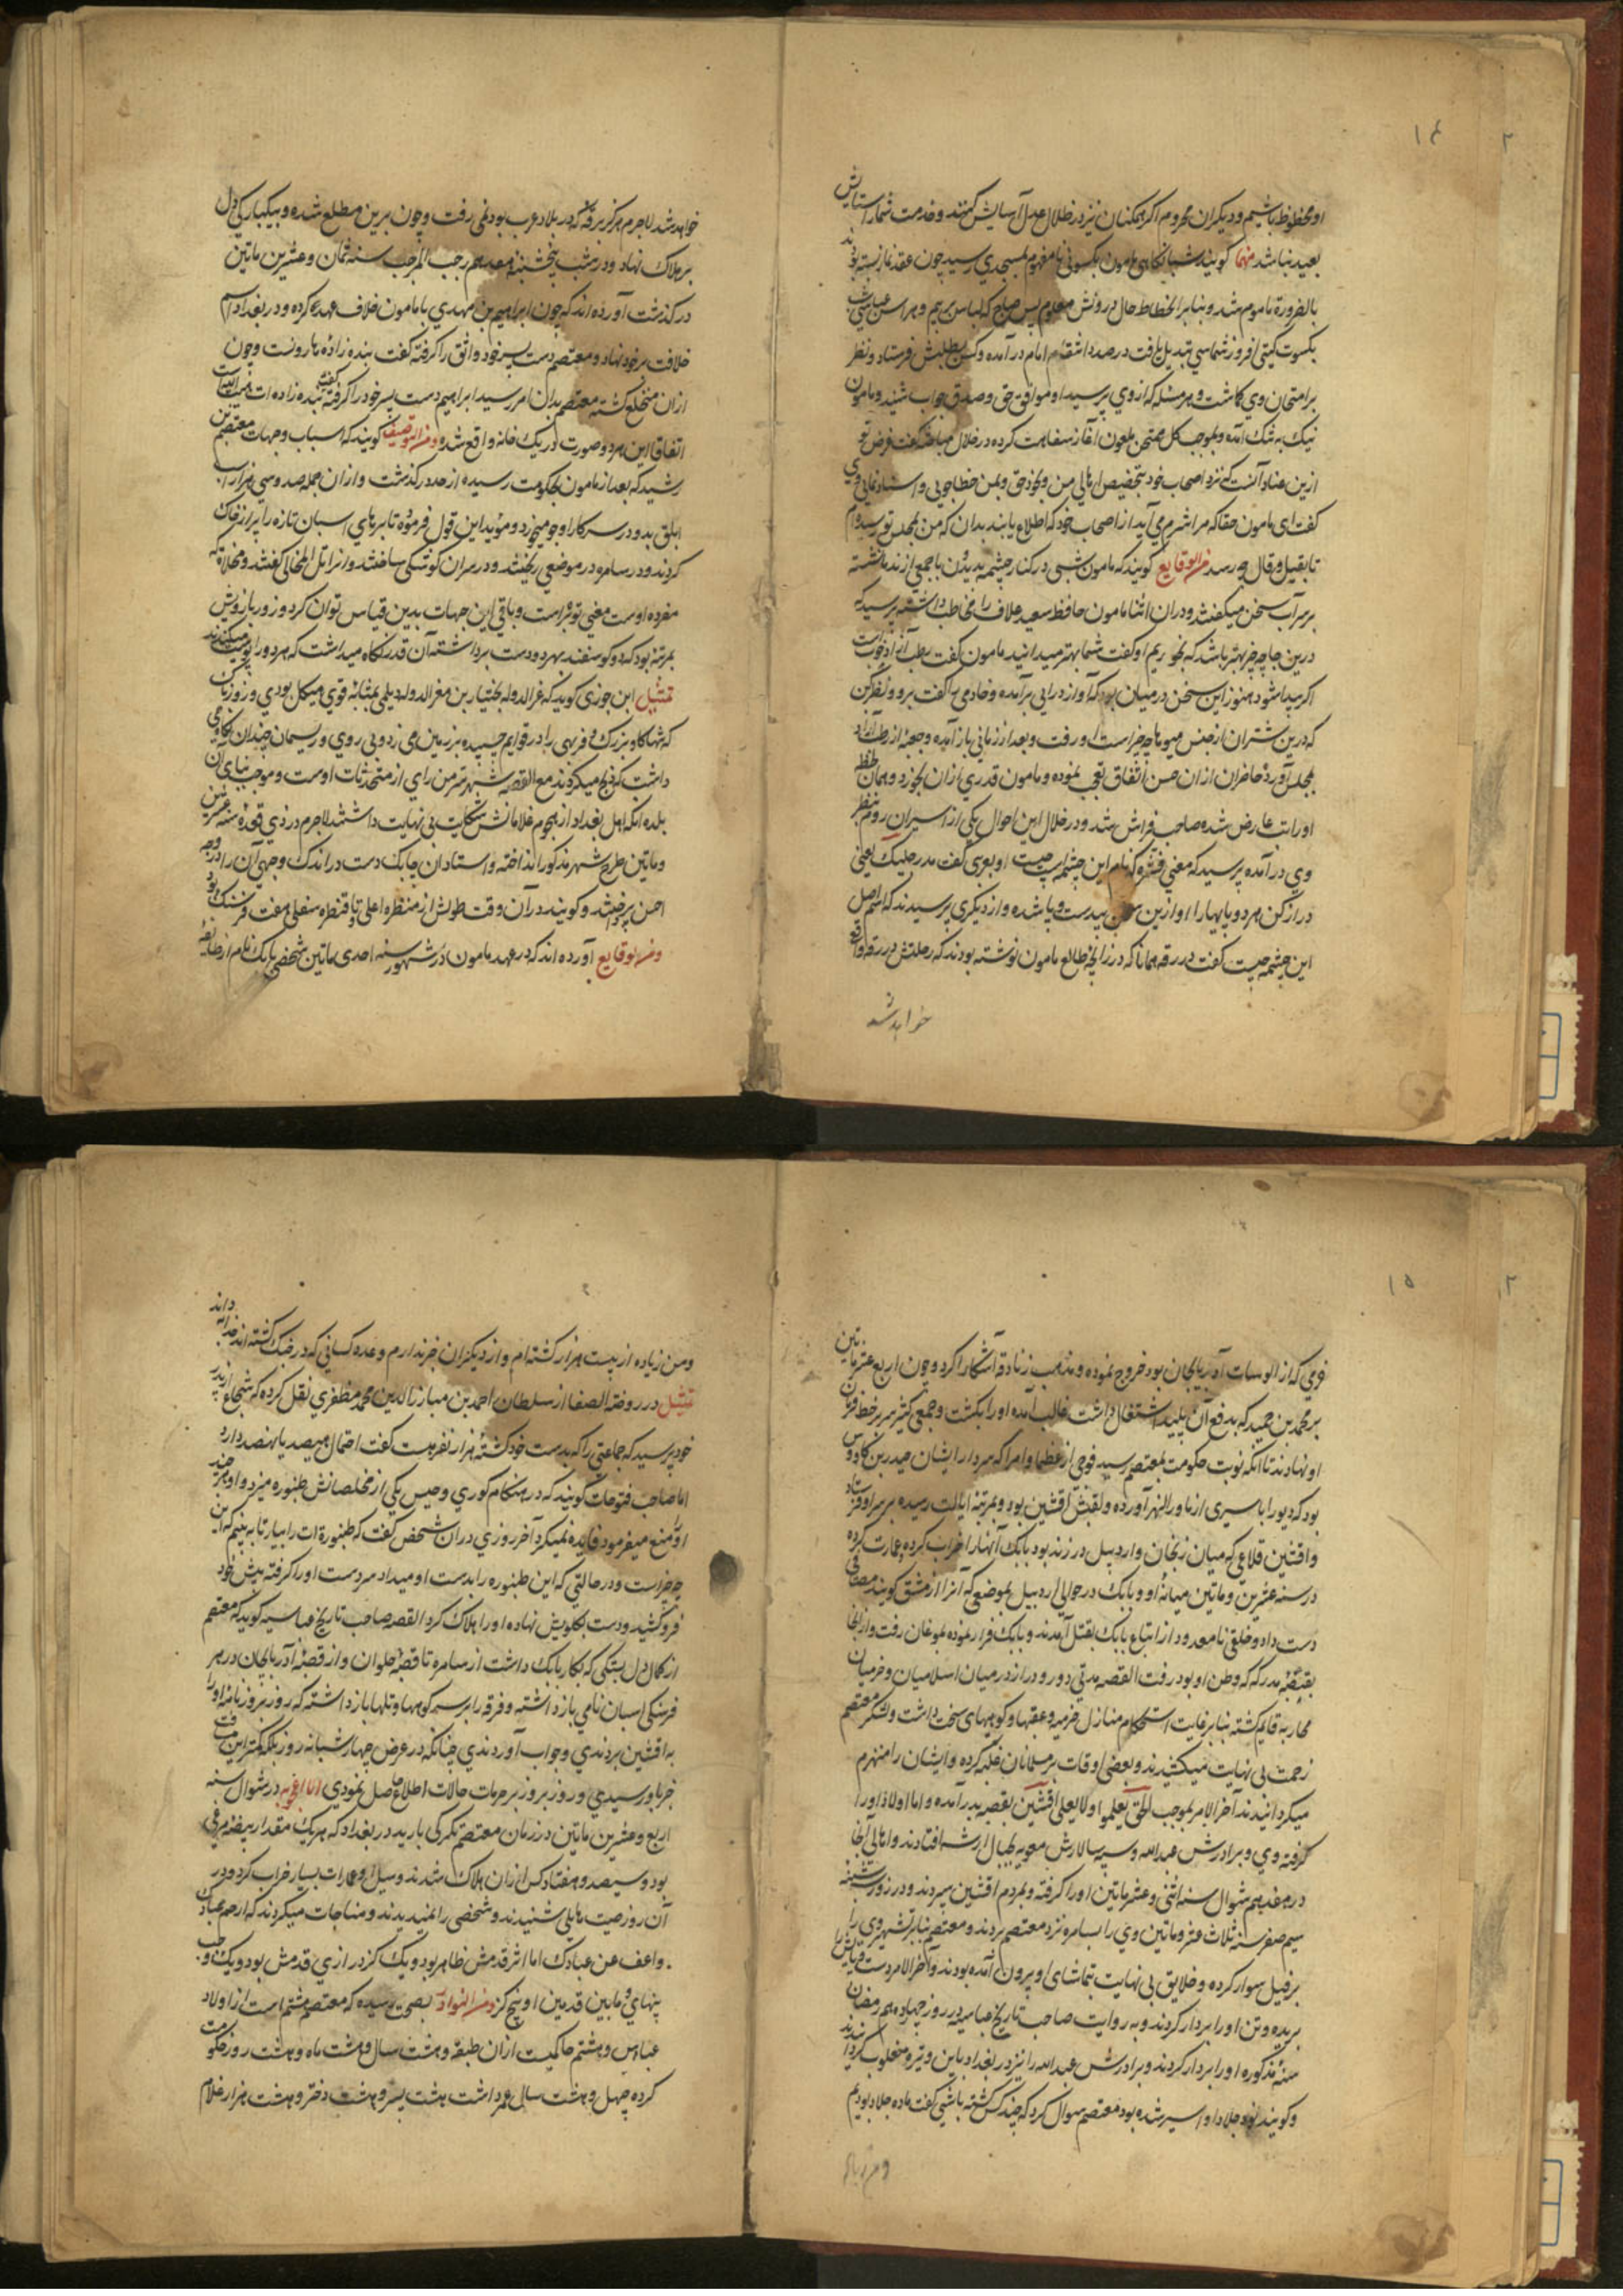 ۱۴
او محظوظ باشیم و دیگران محروم اگر همکنان نیز در ظلال عدل آسایش کنند و خدمت شما را ستایش
بعید نباشد منها گویند شبانگاهی مامون بکسوتی نامفهوم بمسجدی رسید چون عقد نماز بسته بودند
بالضرورة ماموم شد و بنابر انحطاط حال درونش معلوم پس صباح که لباس
بکسوت گیتی افروز شماسی تبدیل یافت در صدد انتقام امام در آمده و کس بطلبش فرستاد و نظر
بر امتحان وی گماشت و هر مسئله که از وی پرسید او موافق حق و صدق جواب شنید و مامون
نیک به شک آمده و بموجب کل ممتحن ملعون آغاز سفاهت کرده در خلال مباحثه گفت غرض تو
ازین عناد آنست که نزد اصحاب خود بتخصیص اهالی من و بمن خطا جویی و اسناد نمایی وی
گفت ای مامون حقا که مرا شرم می آید از اصحاب خود که اطلاع یابند بدان که من بمجلس تو رسیده ام
تا بقیل و قال چه رسد من الوقایع گویند که مامون شبی در کنار چشمه بدیدن با جمعی از ندما نشسته
بر سر آب سخن میگفتند و در آن اثنا مامون حافظ سعید علاف را مخاطب داشته پرسید که
درین جا چه چیز بهتر باشد که بخوریم او گفت شما بهتر میدانید مامون گفت رطب آزاد خوب است
اگر پیدا شود هنوز این سخن در میان بود که آواز درایی برآمده و خادمی را گفت برو و نظر کن
که درین شتران از جنس میوها چه چیز است او رفت و بعد از زمانی باز آمده و جعبه از رطب آزاد
بمجلس آورد حاضران از آن حسن اتفاق تعجب نموده و مامون قدری از آن بخورد و همان لحظه
او را تب عارض شده صاحب فراش شد و در خلال این احوال یکی از اسیران روم بنظر
وی در آمده پرسید که معنی قشیره که نام این چشمه است چیست او بعربی گفت مد رجلیک یعنی
دراز کن هر دو پا یها را او ازین سخن بیدست و پا شده و از دیگری پرسیدند که اسم اصل
این چشمه چیست گفت در رقه همانا که در زایچه طالع مامون نوشته بودند که رحلتش در رقه واقع
خواهد شد
خواهد شد لاجرم هرگز برقه که در بلاد عرب بود نمی رفت و چون برین مطلع شده و بیکبارگی دل
بر هلاک نهاد و در شب پنجشنبه هفدهم رجب المرجب سنه ثمان و عشرین ماتین
در گذشت آورده اند که چون ابراهیم بن مهدی با مامون خلاف عهد کرده و در بغداد اسم
خلافت بر خود نهاد و معتصم دست پسر خود واثق را گرفته گفت بنده زاده هارونست و چون
از ان منخلع گشته معتصم بدان امر رسید ابراهیم دست پسر خود را گرفته گفت بنده زاده ات هبة الله است
اتفاقا این هر دو صورت در یک خانه واقع شد و من التوصیف گویند که اسباب و جهات معتصم بن
رشید که بعد از مامون بحکومت رسیده از حد در گذشت و از ان جمله صد و سی هزار اسب
ابلق بد و در سرکار او جو میخورد و موید این قول فرموده تا بر های اسبان تازه را پر از خاک
کردند و در سامره در موضعی ریختند و در سران کوشکی ساختند و انرا تل المخالی گفتند و مخلاة که
مفرده اوست معنی توبره است و باقی این جهات بدین قیاس توان کرد و زور بازوش
بمرتبه بود که دو گوسفند بهر دو دست بر داشته آن قدر نگاه میداشت که هر دو را پوست میکندند
تمثیل ابن جوزی گوید که عز الدوله بختیار بن معز الدوله دیلمی بمثابه قوی هیکل بودی و زوزنان
که شها گاو بزرگ و فربهی را در قوایم چسپیده بر زمین می زد و بی روی و ریسمان چندان نگاه می
داشت که ذبح میکردند مع القصه شهر سر من رای از متحدثات اوست و موجب بنای آن
بلده انکه اهل بغداد از هجوم غلامانش شکایت بی نهایت داشتند لاجرم در ذی قعده سنه عشرین
و ماتین طرح شهر مذکور انداخته و استادان چابک دست در اندک وجهی آن را در وجه
احسن پرداختند و گویند در آن وقت طولش از منظره اعلی تا قنطره سفلی هفت فرسنگ بود
و من الوقایع آورده اند که در عهد مامون در شهور سنه احدی ماتین شخصی بابک نام از طایفه
۱۵
خرمی که از الوسات آذربایجان بود خروج نموده و مذهب زنادقه آشکارا کرد و چون اربع عشر ماتین
بر محمد بن حمید که بدفع آن پلید اشتغال داشت غالب آمده او را بکشت و جمعی کثیر سر بر خط فرمان
او نهادند تا انکه نوبت حکومت بمعتصم رسید فوجی از عظما و امرا که سردار ایشان حیدر بن کاووس
بود که بو را باسیری از ماوراالنهر آورده و لقبش افشین بود و بمرتبه ایالت رسیده بر سر او فرستاد
و افشین قلاعی که میان زنجان و اردبیل در زند بود بابک آنها را خراب کرده عمارت کرده
در سنه عشرین و ماتین میانه او و بابک در حوالی اردبیل بموضعی که آنرا ارمشق گویند مصافی
دست داد و خلقی نامعدود از اتباع بابک بقتل آمدند و بابک فرار نموده بموغان رفت و از انجا
بقصبه بدر که که وطن او بود رفت القصه مدتی دور و دراز در میان اسلامیان و خرمیان
محاربه قایم گشته بنابر غایت استحکام منازل خرمیه و عقبها و کوههای سخت داشت و لشکر معتصم
زحمت بی نهایت میکشیدند و بعضی اوقات بر مسلمانان غلبه کرده و ایشان را منهزم
میگردانیدند آخر الامر بموجب الحق یعلوا ولا یعلی افشین بقصبه بدر آمده و اما اولاد او را
گرفته وی و برادرش عبدالله و سپه سالارش معویه بجبال ارشه افتادند و اهالی آنجا
در هفدهم شوال سنه اثنی و عشر ماتین او را گرفته و بمردم افشین سپردند و در روز شنبه
سیم صفر سنه ثلاث عشر و ماتین وی را بسامره نزد معتصم بردند و معتصم بنابر تشهیر وی را
بر فیل سوار کرده و خلایق بی نهایت بتماشای او بیرون آمده بودند و آخر الامر دست و پایش را
بریده و تن او را بر دار کردند و به روایت صاحب تاریخ عباسیه در روز چهاردهم رمضان
سنه مذکوره او را بر دار کردند و برادرش عبدالله را نیز در بغداد باین وتیره مصلوب گردانیدند
و گویند نود جلاد او اسیر شده بود معتصم سوال کرد که چند کس کشته باشی گفت ما ده جلاد بودیم
و من زیاده
و من زیاده از بیست هزار کشته ام و از دیگران خبر ندارم و عدد کسانی که در جنگ کشته اند خدا داند
تمثیل در روضة الصفا از سلطان احمد بن مبارز الدین محمد مظفری نقل کرده که شجاع از پدر
خود پرسید که جماعتی را که بدست خود کشته هزار نفر هست گفت احتمال هیصد یا نهصد دارد
اما صاحب فتوحات گویند که در هنگام کوری و حبس یکی از مخلصانش طنبوره میزد و او هر چند
او را منع میفرمود فایده نمیکرد آخر روزی دران شخص گفت که طنبوره ات را بیار تا به بینم که این
چه چیز است و در حالتی که این طنبوره را بدست او میداد سر دست او را گرفته پیش خود
فرو کشید و دست بگلویش نهاده او را هلاک کرد القصه صاحب تاریخ عباسیه گوید که معتصم
از کمال دل بستگی که بکار بابک داشت از سامره تا قصبه حلوان و از قصبه آذربایجان در هر
فرسنگی اسبان نامی باز داشته و فرقه را بر سر کوهها و تلها باز داشته که روز بروز نامه او را
به افشین بردندی و جواب آوردندی چنانکه در عرض چهار شبانه روز بلکه کمتر این مسافت
خبر باو رسیدی و روز بروز بر حرمات حالات اطلاع حاصل نمودی اما اعجوبه در شوال سنه
اربع و عشرین ماتین در زمان معتصم تگرگی بارید در بغداد که هر یک مقدار بیضه مرغی
بود و سیصد و هفتاد کس از ان هلاک شدند و سیل او عمارات بسیار خراب کرد و در
آن روز صیت هایلی شنیدند و شخصی را نمیدیدند و مناجات میکردند که ارحم عبادک
واعف عن عبادک اما اثر قدمش ظاهر بود و یک گز درازی قدمش بود و یک وجب
پهنای و مابین قدمین او پنج گز و من النوادر بصحت رسیده که معتصم هشتم است از اولاد
عباس و هشتم حاکمیت ازان طبقه و هشت سال و هشت ماه و هشت روز حکومت
کرده چهل و هشت سال عمر داشت هشت پسر و هشت دختر و هشت هزار غلام